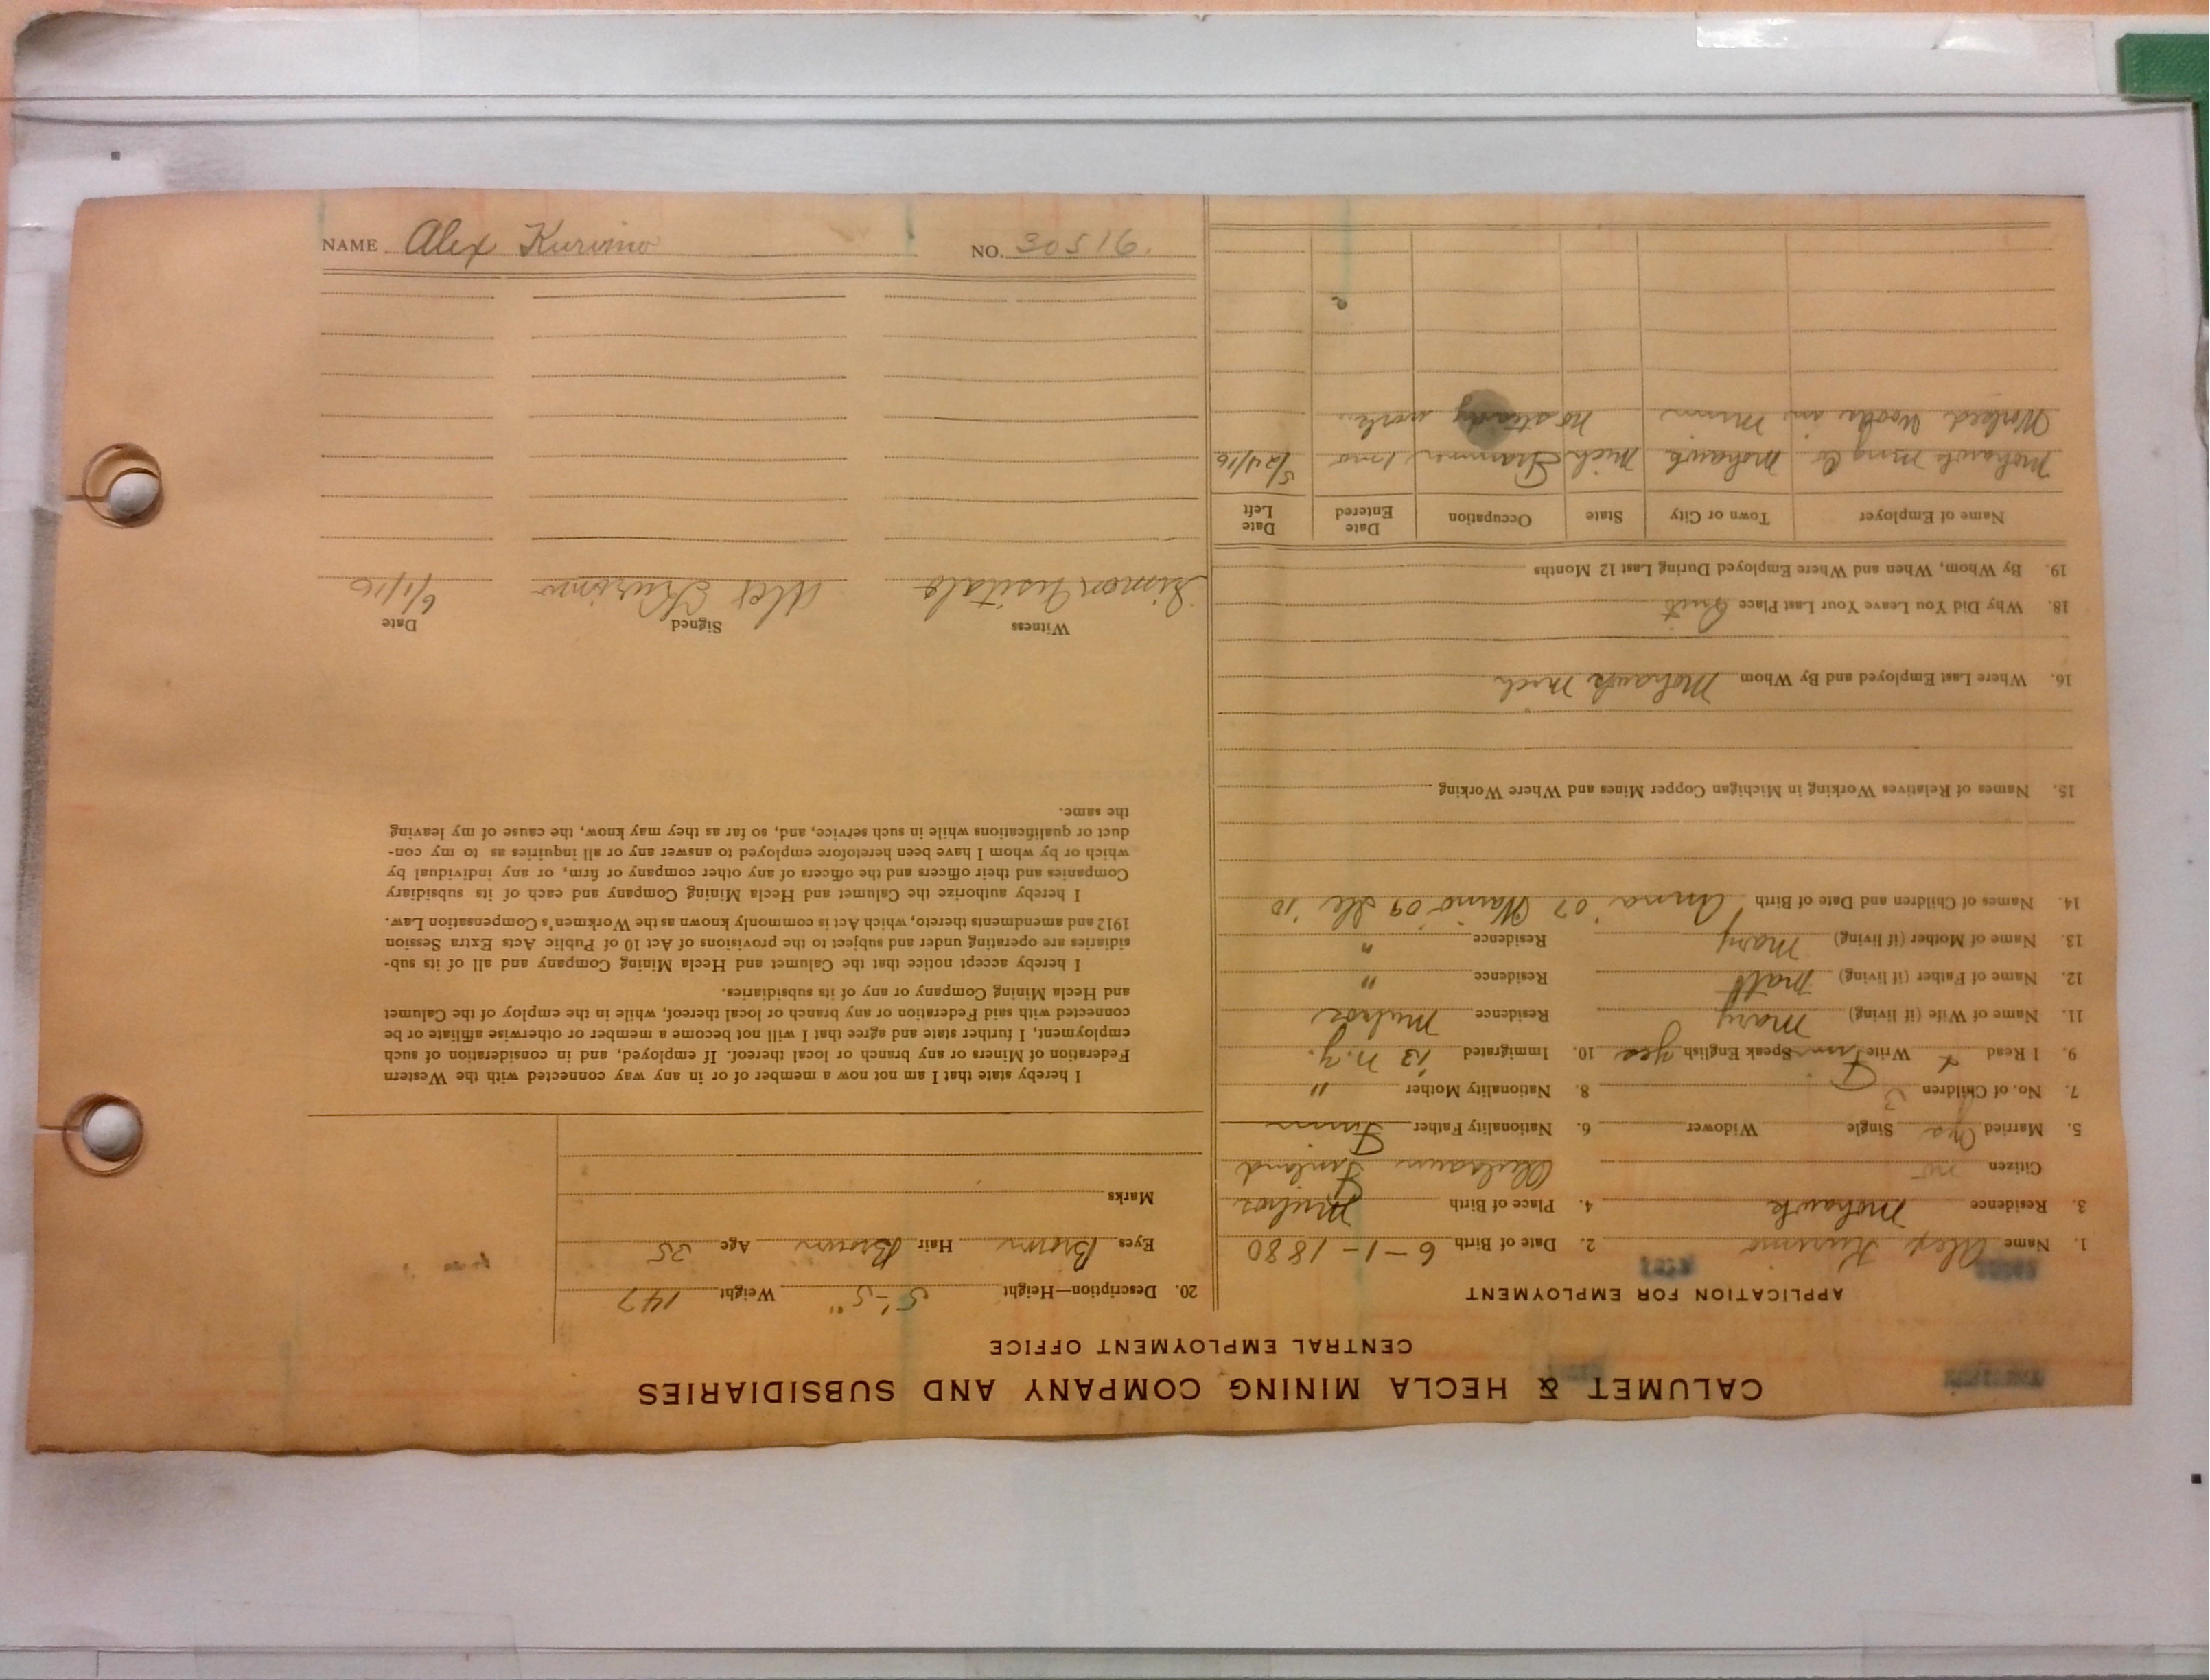 CALUMET & HECLA MINING COMPANY AND SUBSIDIARIES
CENTRAL EMPLOYMENT OFFICE
APPLICATION FOR EMPLOYMENT
1. Name Alex Kurimo 2. Date of Birth 6-1-1880
3. Residence Mohawk 4. Place of Birth
Citizen no Finland
5. Married yes Single Widower 6. Nationality Father Finn
7. No. of Children 3 8. Nationality Mother "
9. I Read & Write Finn Speak English yes 10. Immigrated '13 N.Y.
11. Name of Wife (if living) Mary Residence
12. Name of Father (if living) Matt Residence "
13. Name of Mother (if living) Mary Residence "
14. Names of Children and Date of Birth Anna '07 Waino '09 '10
15. Names of Relatives Working in Michigan Copper Mines and Where Working
16. Where Last Employed and By Whom Mohawk Mich
18. Why Did You Leave Your Last Place Quit
19. By Whom, When and Where Employed During Last 12 Months
Name of Employer Town or City State Occupation Date Entered Date Left
Mohawk Mng Co Mohawk Mich Trammer 1 mo 5/24/16
Worked Woods in Minn no steady work
20. Description—Height 5'-5" Weight 147
Eyes Brown Hair Brown Age 35
Marks
I hereby state that I am not now a member of or in any way connected with the Western
Federation of Miners or any branch or local thereof. If employed, and in consideration of such
employment, I further state and agree that I will not become a member or otherwise affiliate or be
connected with said Federation or any branch or local thereof, while in the employ of the Calumet
and Hecla Mining Company or any of its subsidiaries.
I hereby accept notice that the Calumet and Hecla Mining Company and all of its sub-
sidiaries are operating under and subject to the provisions of Act 10 of Public Acts Extra Session
1912 and amendments thereto, which Act is commonly known as the Workmen's Compensation Law.
I hereby authorize the Calumet and Hecla Mining Company and each of its subsidiary
Companies and their officers and the officers of any other company or firm, or any individual by
which or by whom I have been heretofore employed to answer any or all inquiries as to my con-
duct or qualifications while in such service, and, so far as they may know, the cause of my leaving
the same.
Witness Signed Date
Simon Uusitalo Alex Kurimo 6/1/16
NAME Alex Kurimo NO. 30516.